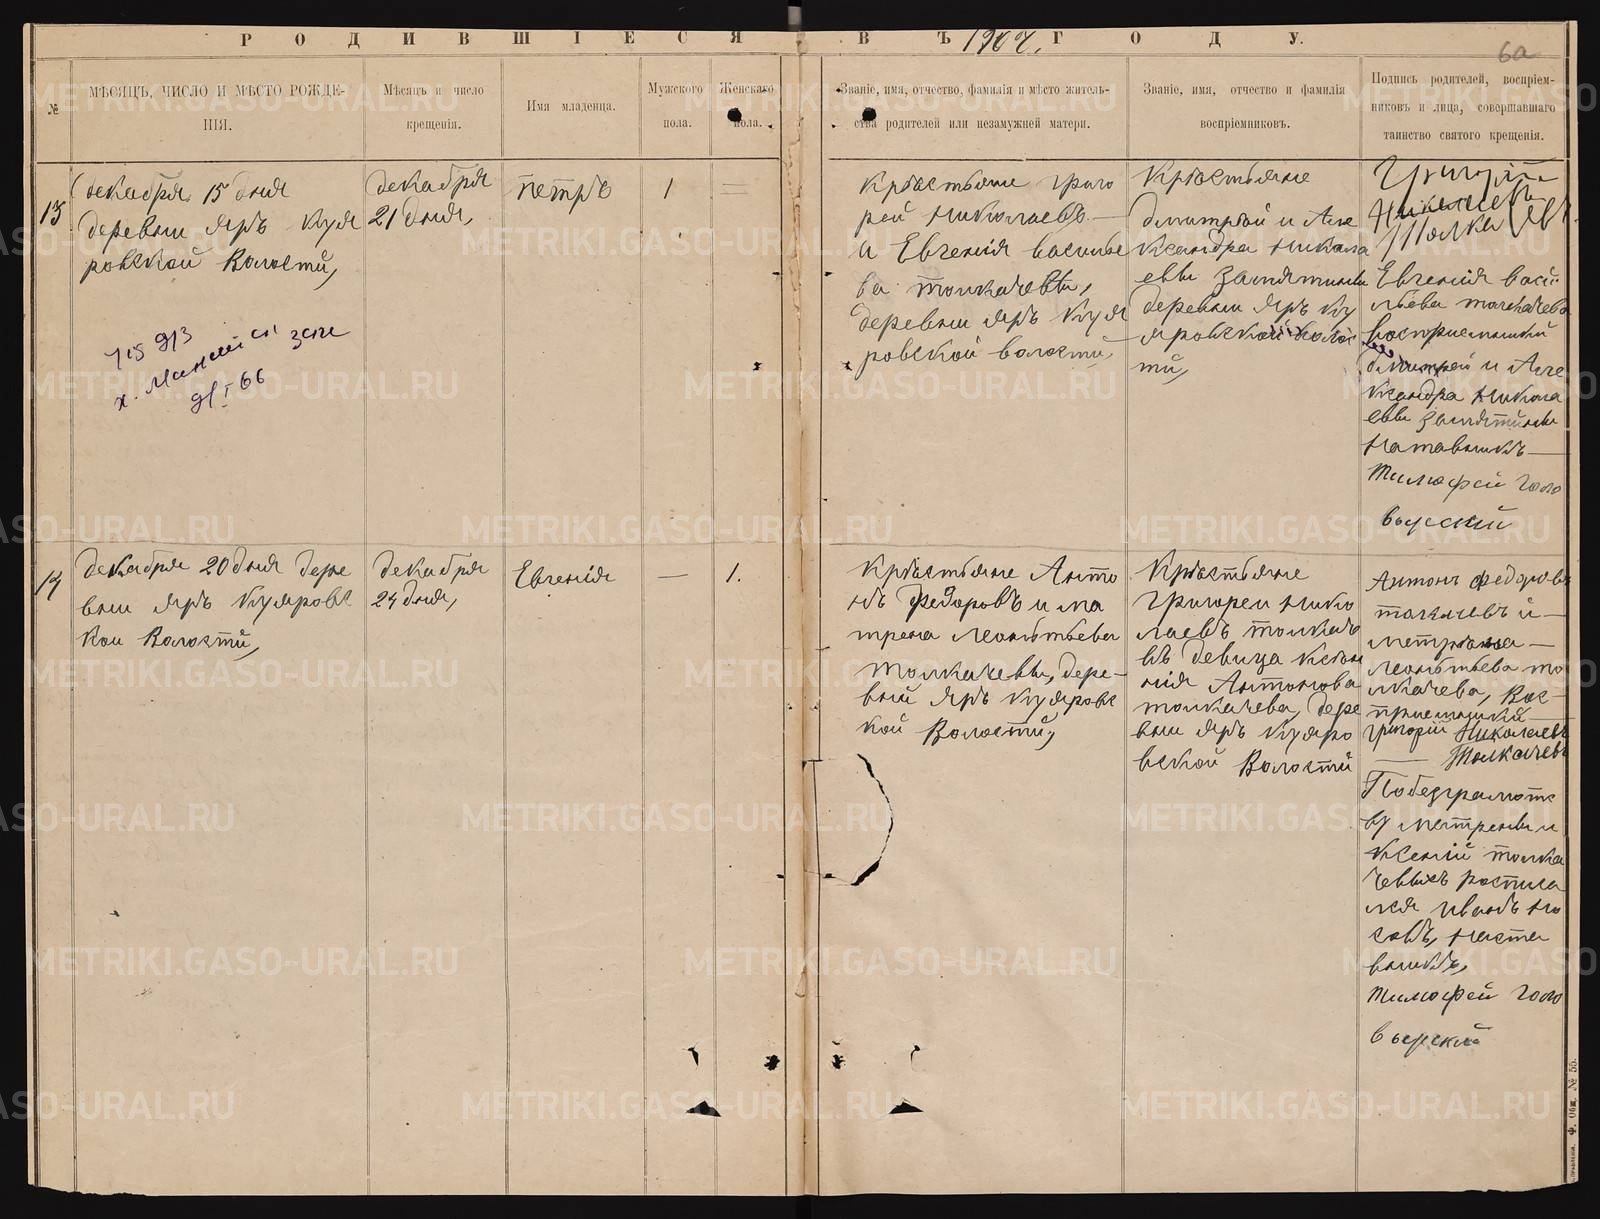 РОДИВШІЕСЯ ВЪ 1907 ГОДУ.
6а
№
МѢСЯЦЪ, ЧИСЛО И МѢСТО РОЖДЕ-
НІЯ.
Мѣсяцъ и число
крещенія.
Имя младенца.
Мужского
пола.
Женскаго
пола.
Званіе, имя, отчество, фамилія и мѣсто житель-
ства родителей или незамужней матери.
Званіе, имя, отчество и фамилія
воспріемниковъ.
Подпись родителей, воспріем-
никовъ и лица, совершавшаго
таинство святого крещенія.
13
декабря 15 дня
деревни Яръ Куя
ровской Волости,
декабря
21 дня,
петръ
1
=
Крѣстьяне григо
рей николаевъ
и Евгенія василье
ва толкачевы,
деревни Яръ Куя
ровской волости,
Крѣстьяне
дмитрѣй и Але
ксандра никола
евы замятины
деревни Яръ Ку
яровской волос
ти,
Григорій
Николаевъ
Толкачевъ
Евгенія васи
льева толкачева
воспріемники
дмитрей и Але
ксандра никола
евы замятины
наставникъ
Тимофей Голо
вырский
14
декабря 20 дня дере
вни Яръ Куяровс
кои Волости,
декабря
24 дня,
Евгенія
—
1.
Крѣстьяне Анто
нъ Федоровъ и ма
трена Леонтьева
толкачевы, дере-
вни Яръ Куяровс
кой Волости,
Крѣстьяне
григореи нико
лаевъ толкаче
въ девица ксен
ния Антонова
толкачева, дере
вни Яръ Куяро
вской Волости
Антонъ федоровъ
толкачевъ и
метрена
леонтьева то
лкачева, Вос-
приемники
григорій Николаевъ
Толкачевъ
По безграмотс
ву метрены и
ксеній толка
чевыхъ росписа
лся иванъ но
совъ, наста
вникъ,
Тимофей Голо
вырский
Ф. Общ. № 55.
METRIKI.GASO-URAL.RU